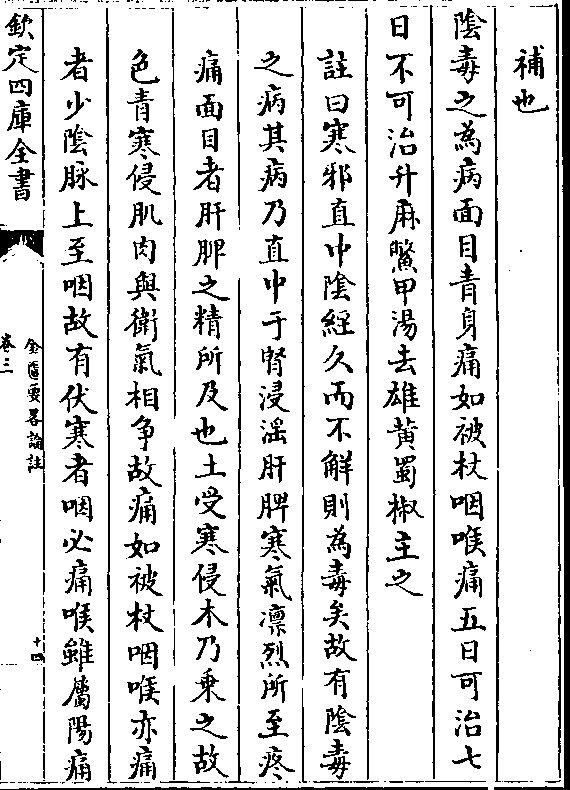 補也
陰毒之為病面目青身痛如被杖咽喉痛五日可治七
日不可治升麻鱉甲湯去雄黃蜀椒主之
註曰寒邪直中陰經久而不解則為毒矣故有陰毒
之病其病乃直中于腎浸淫肝脾寒氣凛烈所至疼
痛面目者肝脾之精所及也土受寒侵木乃乗之故
色青寒侵肌肉與衛氣相争故痛如被杖咽喉亦痛
者少陰脉上至咽故有伏寒者咽必痛喉雖屬陽痛
欽定四庫全書
金匱要畧論註
卷三
十四